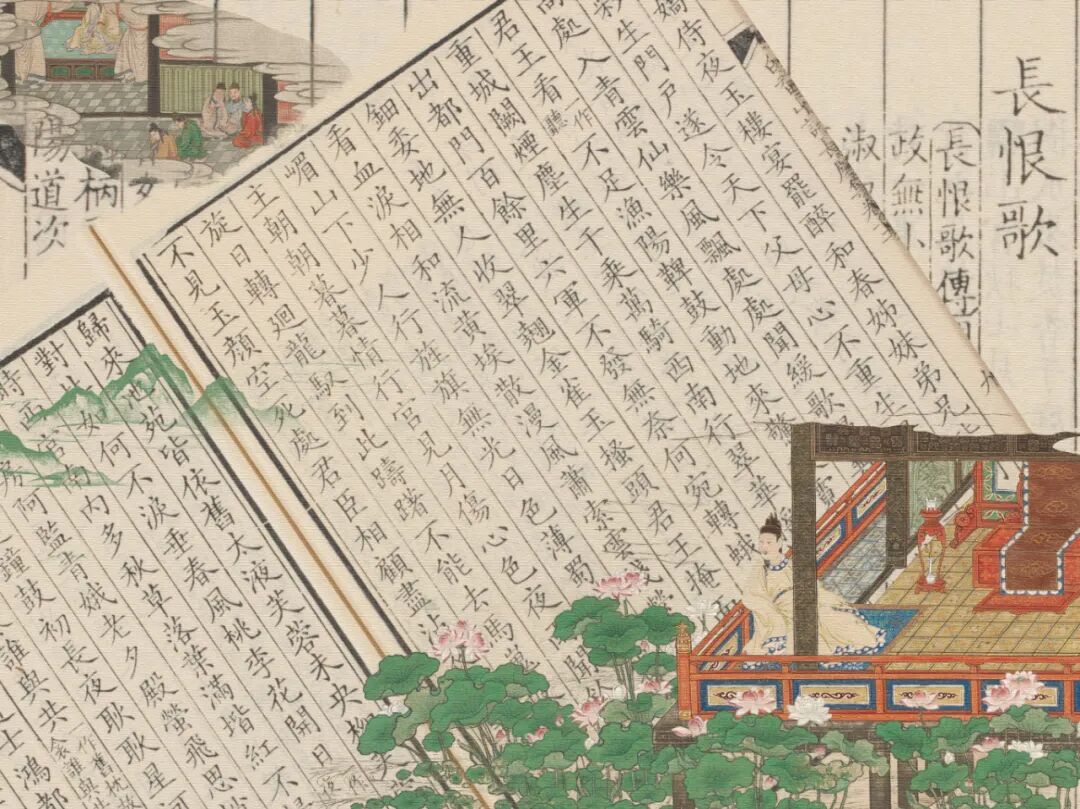 長恨歌
長恨歌傳
政無小
淑
嬌侍夜玉樓宴罷醉和春姊妹弟兄
彩生門戶遂令天下父母心不重生
處入青雲仙樂風飄處處聞緩歌
君王看一作聽不足漁陽鞞鼓動地來驚
重城闕煙塵生千乘萬騎西南行翠華
出都門百餘里六軍不發無奈何宛轉蛾
鈿委地無人收翠翹金雀玉搔頭君王掩
看血淚相和流黃埃散漫風蕭索雲棧
嵋山下少人行旌旗無光日色薄蜀
主朝朝暮暮情行宮見月傷心色夜
旋日轉迴龍馭到此躊躇不能去馬嵬
不見玉顏空死處君臣相顧盡沾
歸來池苑皆依舊太液芙蓉未央柳
對如何不淚垂春風桃李花開日
時西宮南內多秋草落葉滿堦紅不
房阿監青娥老夕殿螢飛思悄
鐘鼓初長夜耿耿星河
誰與共作舊枕故衾誰與共
士鴻都
柄
道次